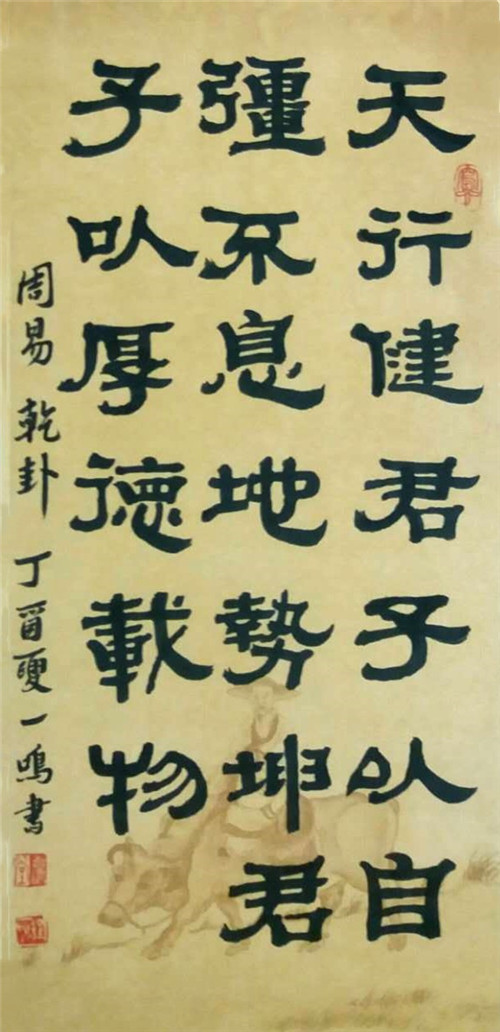 天行健君子以自
彊不息地勢坤君
子以厚德載物
周易乾卦丁酉夏一鳴書